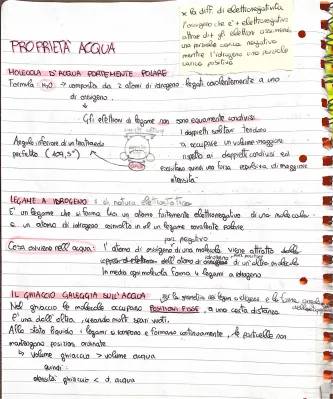 x la diff. di elettronegatività
l'ossigeno che è + elettronegativo
attrae di + gli elettroni assumendo
una parziale carica negativa
mentre l'idrogeno una parziale
carica positiva
PROPRIETÀ ACQUA
MOLECOLA D'ACQUA FORTEMENTE POLARE
Formula: H₂O → composta da 2 atomi di idrogeno legati covalentemente a uno
di ossigeno.
Gli elettroni di legame non sono equamente condivisi
I doppietti solitari tendono
Angolo inferiore di un tetraedro
perfetto (109,5°)
a occupare un volume maggiore
rispetto ai doppietti condivisi ed
esercitano quindi una forza repulsiva di maggiore
intensità.
LEGAME A IDROGENO è di natura elettrostatica
È un legame che si forma tra un atomo fortemente elettronegativo di una molecola
e un atomo di idrogeno coinvolto in un legame covalente polare
parz. negativo
Cosa avviene nell'acqua: l'atomo di ossigeno di una molecola viene attratto
dell'atomo di idrogeno di un'altra molecola
In media ogni molecola forma 4 legami a idrogeno
IL GHIACCIO GALLEGGIA SULL'ACQUA
Nel ghiaccio le molecole occupano POSIZIONI FISSE, a una certa distanza
l'una dall'altra, creando molti spazi vuoti.
Allo stato liquido i legami si rompono e formano continuamente, le particelle non
mantengono posizioni ordinate.
↳ volume ghiaccio > volume acqua
quindi:
densità ghiaccio < d. acqua